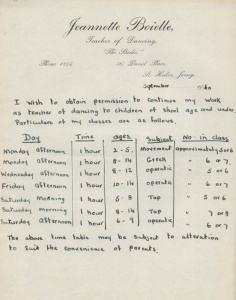 Jeannette Boielle,
Teacher of Dancing,
"The Studio,"
Phone
St. Helier, Jersey.
September 1940
I wish to obtain permission to continue my work
as teacher of dancing to children of school age and under.
Particulars of my classes are as follows.
Day Time ages Subject No in class
Monday afternoon 1 hour 2-5. Movement approximately 5 or 6
Monday afternoon 1 hour 8-14 Greek " 6 or 7.
Wednesday afternoon 1 hour 8-12 operatic " 6 or 7
Friday afternoon 1 hour 10-14 operatic " 6 or 7
Saturday Morning 1 hour 5-8 Tap " 5 or 6
Saturday morning 1 hour 8-14 Tap " 7 or 8
Saturday afternoon 1 hour 6-9 operatic " 6 or 7
The above time table may be subject to alteration
to suit the convenience of parents.